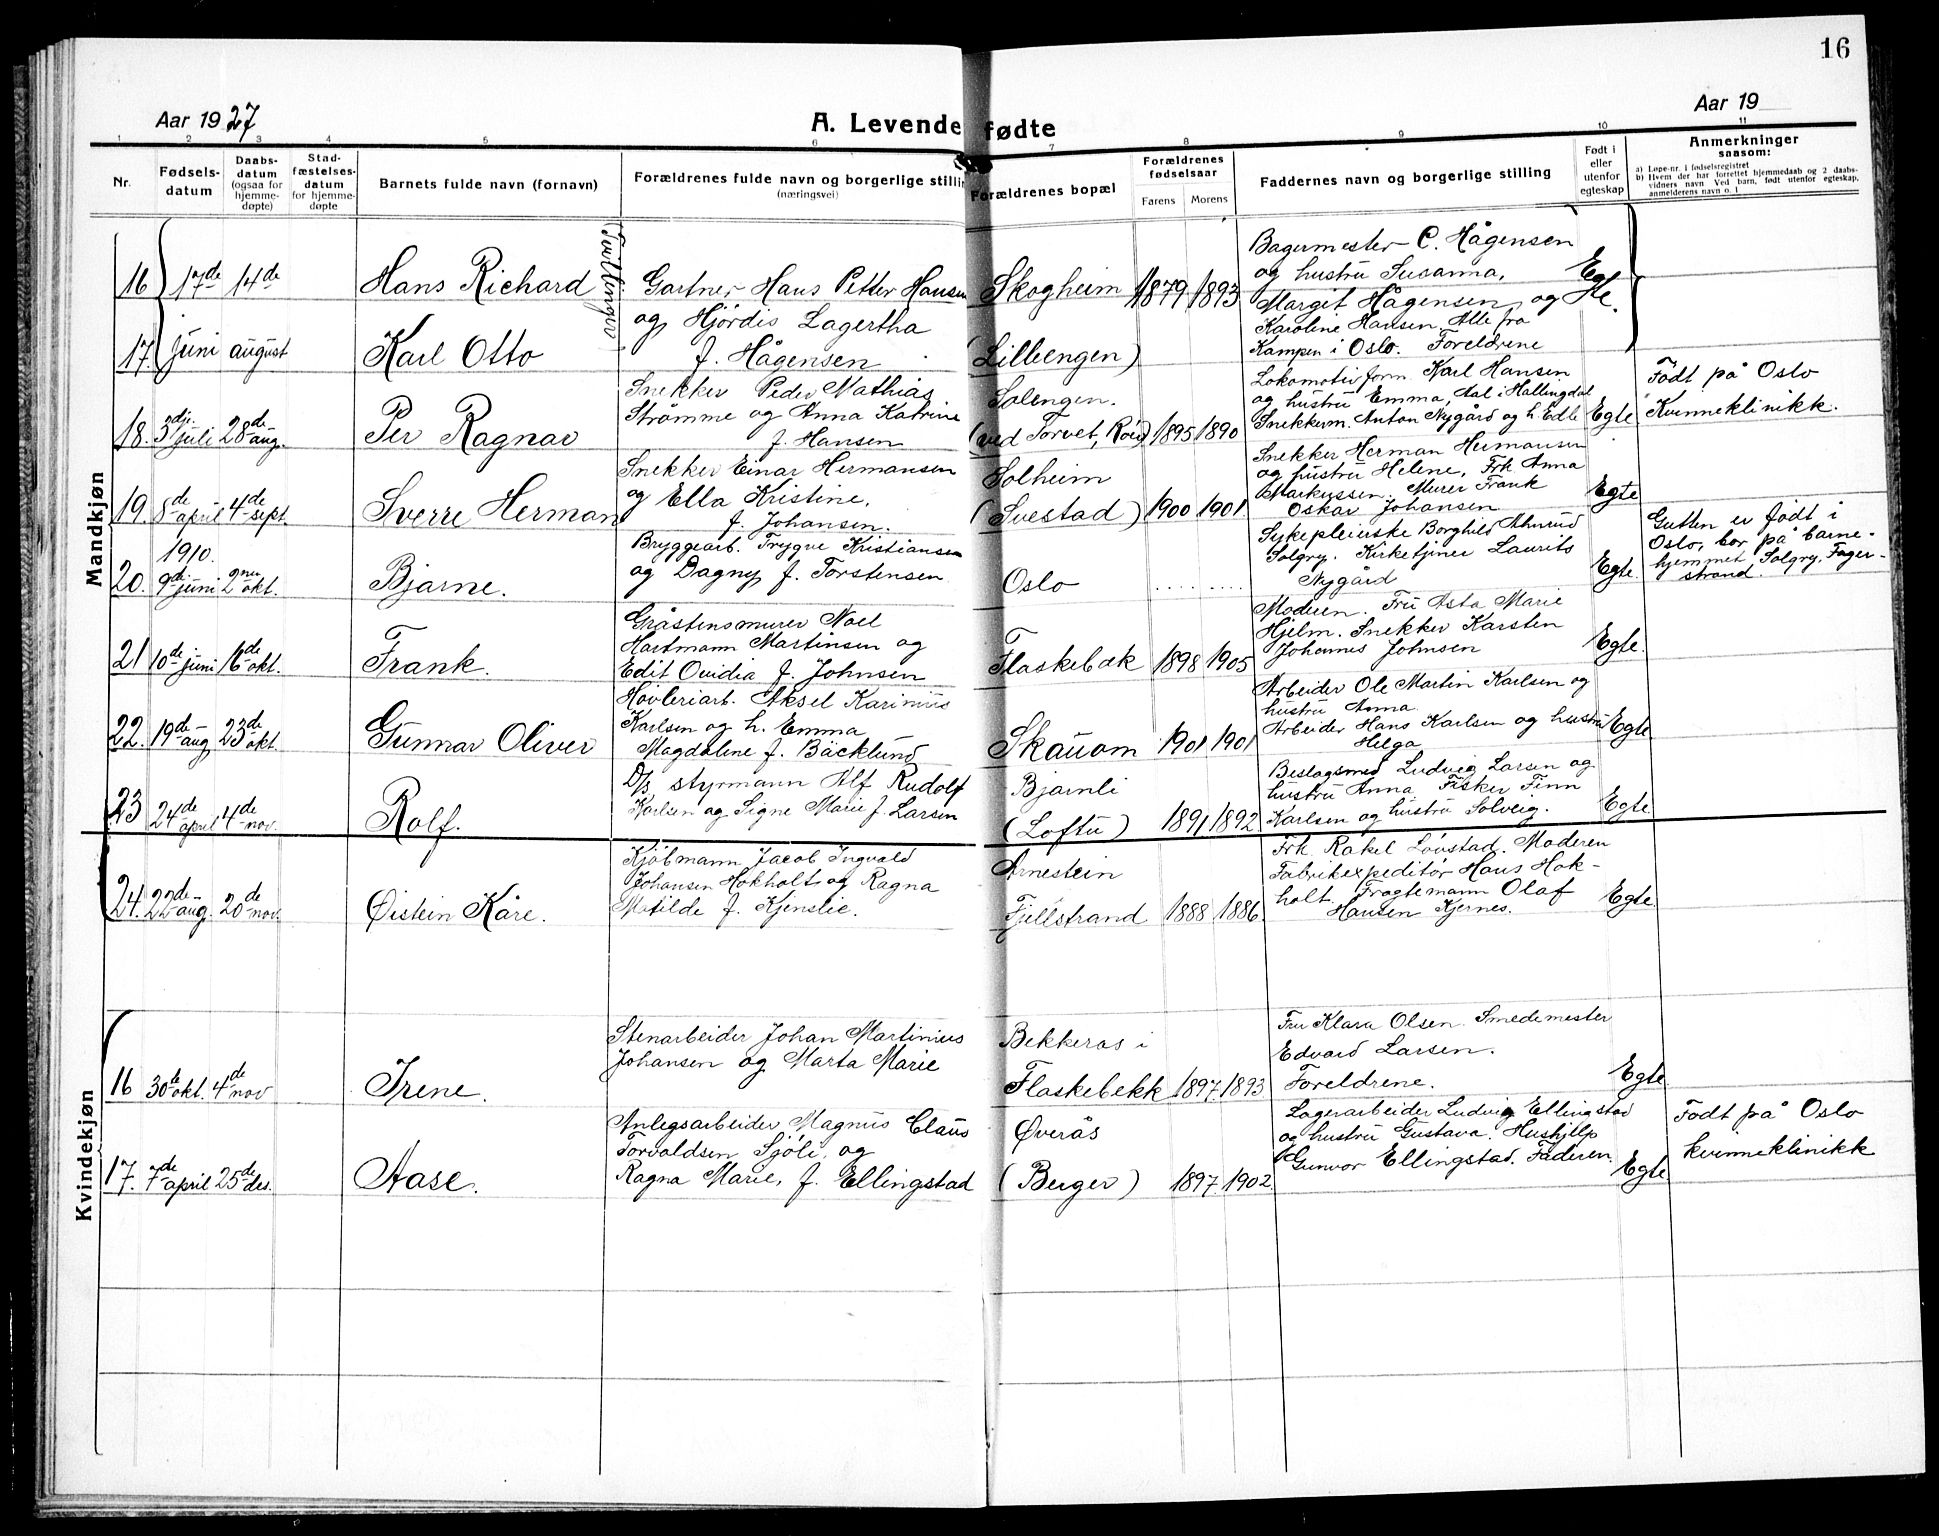 16
Aar 1927
A. Levende fødte
Aar 19
1 2 3 4 5 6 7 8 9 10 11
Nr.
Fødsels-
datum
Daabs-
datum
(ogsaa for
hjemme-
døpte)
Stad-
fæstelses-
datum
for hjemme-
døpte
Barnets fulde navn (fornavn)
Forældrenes fulde navn og borgerlige stilling
(næringsvei)
Forældrenes bopæl
Forældrenes
fødselsaar
Farens Morens
Faddernes navn og borgerlige stilling
Født i
eller
utenfor
egteskap
Anmerkninger
saasom:
a) Løpe-nr. i fødselsregistret
b) Hvem der har forrettet hjemmedaab og 2 daabs-
vidners navn. Ved barn, født utenfor egteskap,
anmelderens navn o. l
Mandkjøn
16 17de 14de
17. juni august
Hans Richard
Karl Otto
Tvillinger
Gartner Hans Petter Hansen
og Hjördis Lagertha
f. Hågensen
Skogheim
(Lilleengen)
1879 1893
Bagermester C. Hågensen
og hustru Susanna,
Margit Hågensen og
Karoline Hansen. Alle fra
Kampen i Oslo. Foreldrene
Egte.
18. 3dje juli 28de aug.
Per Ragnar
Snekker Peder Mathias
Strømme og Anna Katrine
f. Hansen
Solengen.
(ved Torvet, Roer)
1895 1890
Lokomotivform Karl Hansen
og hustru Emma, Aal i Hallingdal
Snekkerm. Anton Nygård og h. Edle
Egte
Født på Oslo
Kvinneklinikk.
19. 8de april 4de sept
Sverre Herman
Snekker Einar Hermansen
og Ella Kristine,
f. Johansen.
Solheim
(Svestad)
1900 1901
Snekker Herman Hermansen
og hustru Helene, Frk Anna
Markussen. Murer Frank
Oskar Johansen
Egte
1910.
20. 9de juni 2nen okt.
Bjarne.
Bryggearb. Trygve Kristiansen
og Dagny f. Torstensen
Oslo
Sykepleierske Borghild
Solgry. Kirketjiner Laurits
Nygård
Egte.
Gutten er født i
Oslo, bor på barne-
hjemmet, Solgry, Fager-
strand.
21 10de juni 16de okt.
Frank.
Gråstensmurer Noel
Hartmann Martinsen og
Edit Ovidia f. Johnsen
Flaskebæk
1898 1905
Moderen. Fru Asta Marie
Hjelm. Snekker Karsten
Johannes Johnsen
Egte.
22. 19de aug. 23de okt.
Gunnar Oliver
Høvleriarb. Aksel Karinius
Karlsen og h. Emma
Magdaline f. Bäcklund
Skauom
1901 1901
Arbeider Ole Martin Karlsen og
hustru Anna
Arbeider Hans Karlsen og hustru
Helga
Egte
23 24de april 4de nov.
Rolf.
D/s styrmann Alf Rudolf
Karlsen og Signe Marie f. Larsen
Bjarnli
(Loftu)
1891 1892
Beslagsmed Ludvig Larsen og
hustru Anna. Fisker Finn
Karlsen og hustru Solveig.
Egte.
24. 22de aug. 20de nov.
Øistein Kåre.
Kjöbmann Jacob Ingvald
Johansen Hokholt og Ragna
Matilde f. Kjenslie.
Arnestein
Fjellstrand
1888 1886.
Frk Rakel Løvstad. Moderen
Fabrikexpeditør Hans Hok-
holt. Fragtemann Olaf
Hansen Kjernes.
Egte.
Kvindekjøn
16 30te okt. 4de nov
Irene.
Stenarbeider Johan Martinius
Johansen og Marta Marie
Bekkeros i
Flaskebekk
1897 1893
Fru Klara Olsen. Smedemester
Edvard Larsen.
Foreldrene.
Egte
17. 7de april 25de des.
Aase.
Anlegsarbeider Magnus Claus
Torvaldsen Sjöli, og
Ragna Marie, f. Ellingstad
Øverås
(Berger)
1897 1902.
Lagerarbeider Ludvig Ellingstad
og hustru Gustava. Hushjelp
Gunvor Ellingstad. Faderen.
Egte.
Født på Oslo
kvinneklinikk